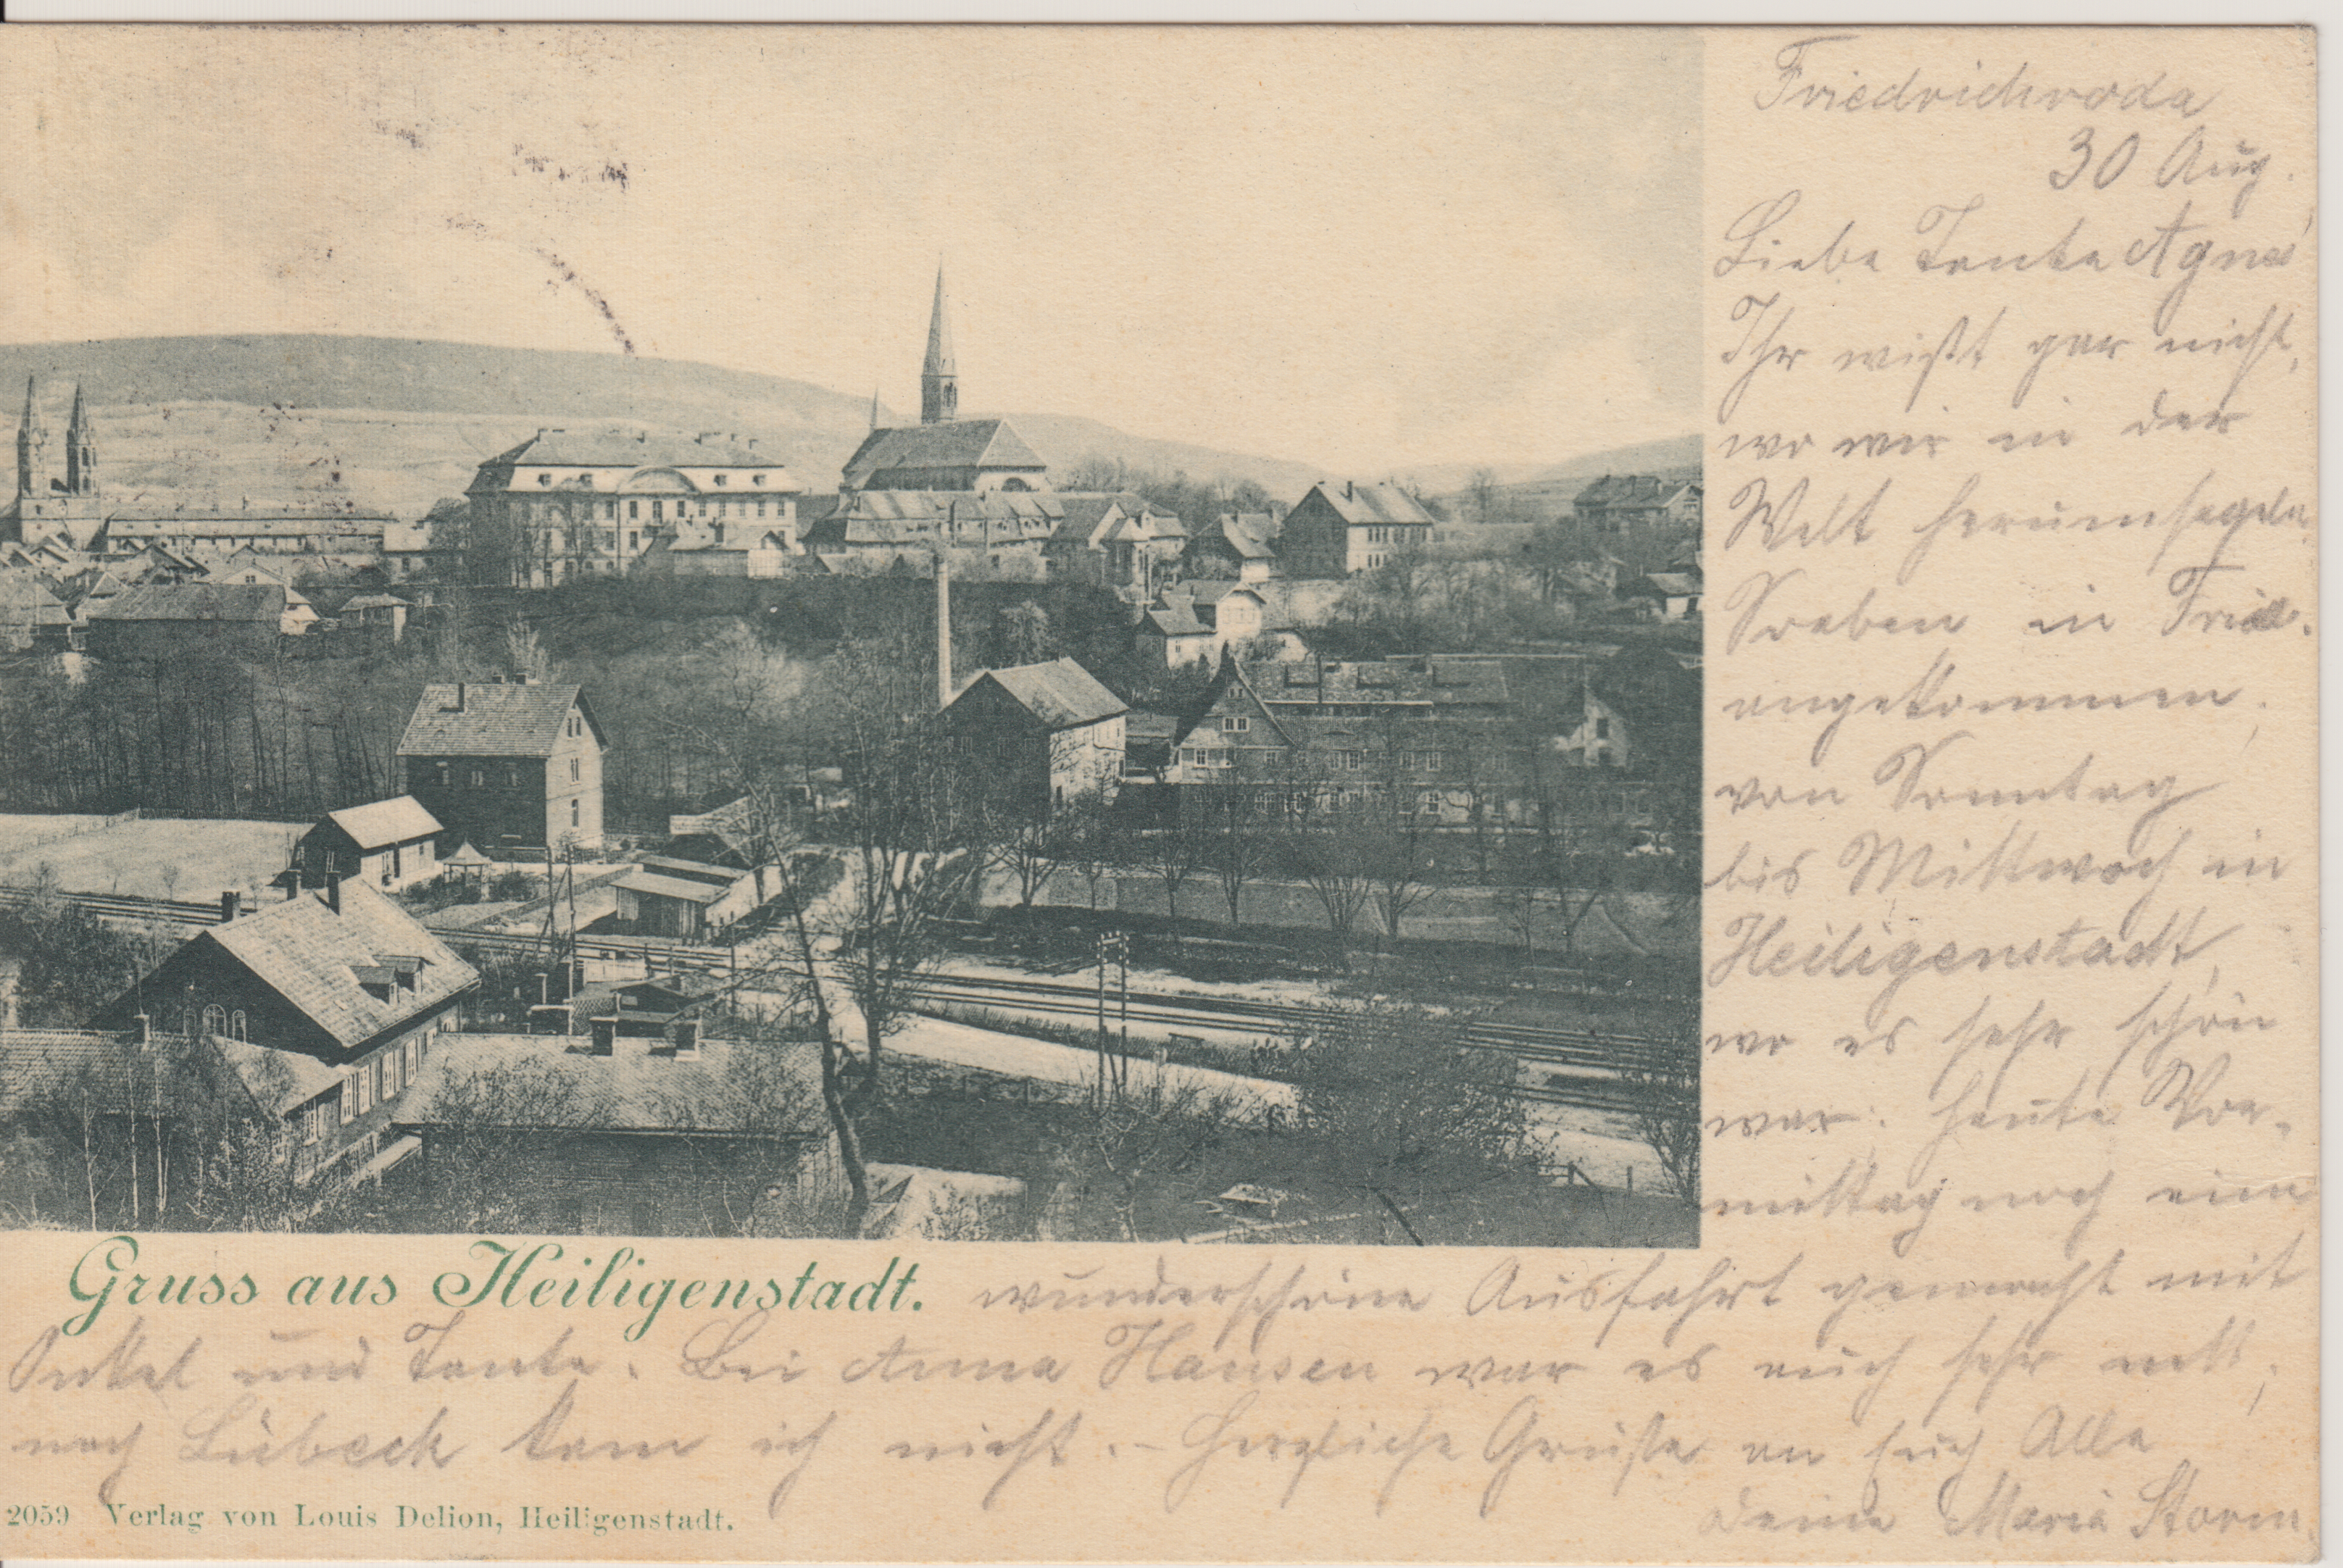 Friedrichroda
30 Aug.
Liebe Tante Agnes,
Ihr wißt gar nicht,
wo wir in der
Welt herumsegeln.
Soeben in Fried.
angekommen,
von Sonntag
bis Mittwoch in
Heiligenstadt,
wo es sehr schön
war. heute Vor-
mittag noch eine
Gruss aus Heiligenstadt. wunderschöne Ausfahrt gemacht mit
Onkel und Tante. Bei Anna Hansen war es auch sehr nett,
nach Lübeck kam ich nicht. – Herzliche Grüße an Euch Alle
Deine Maria Storm.
2059 Verlag von Louis Delion, Heiligenstadt.